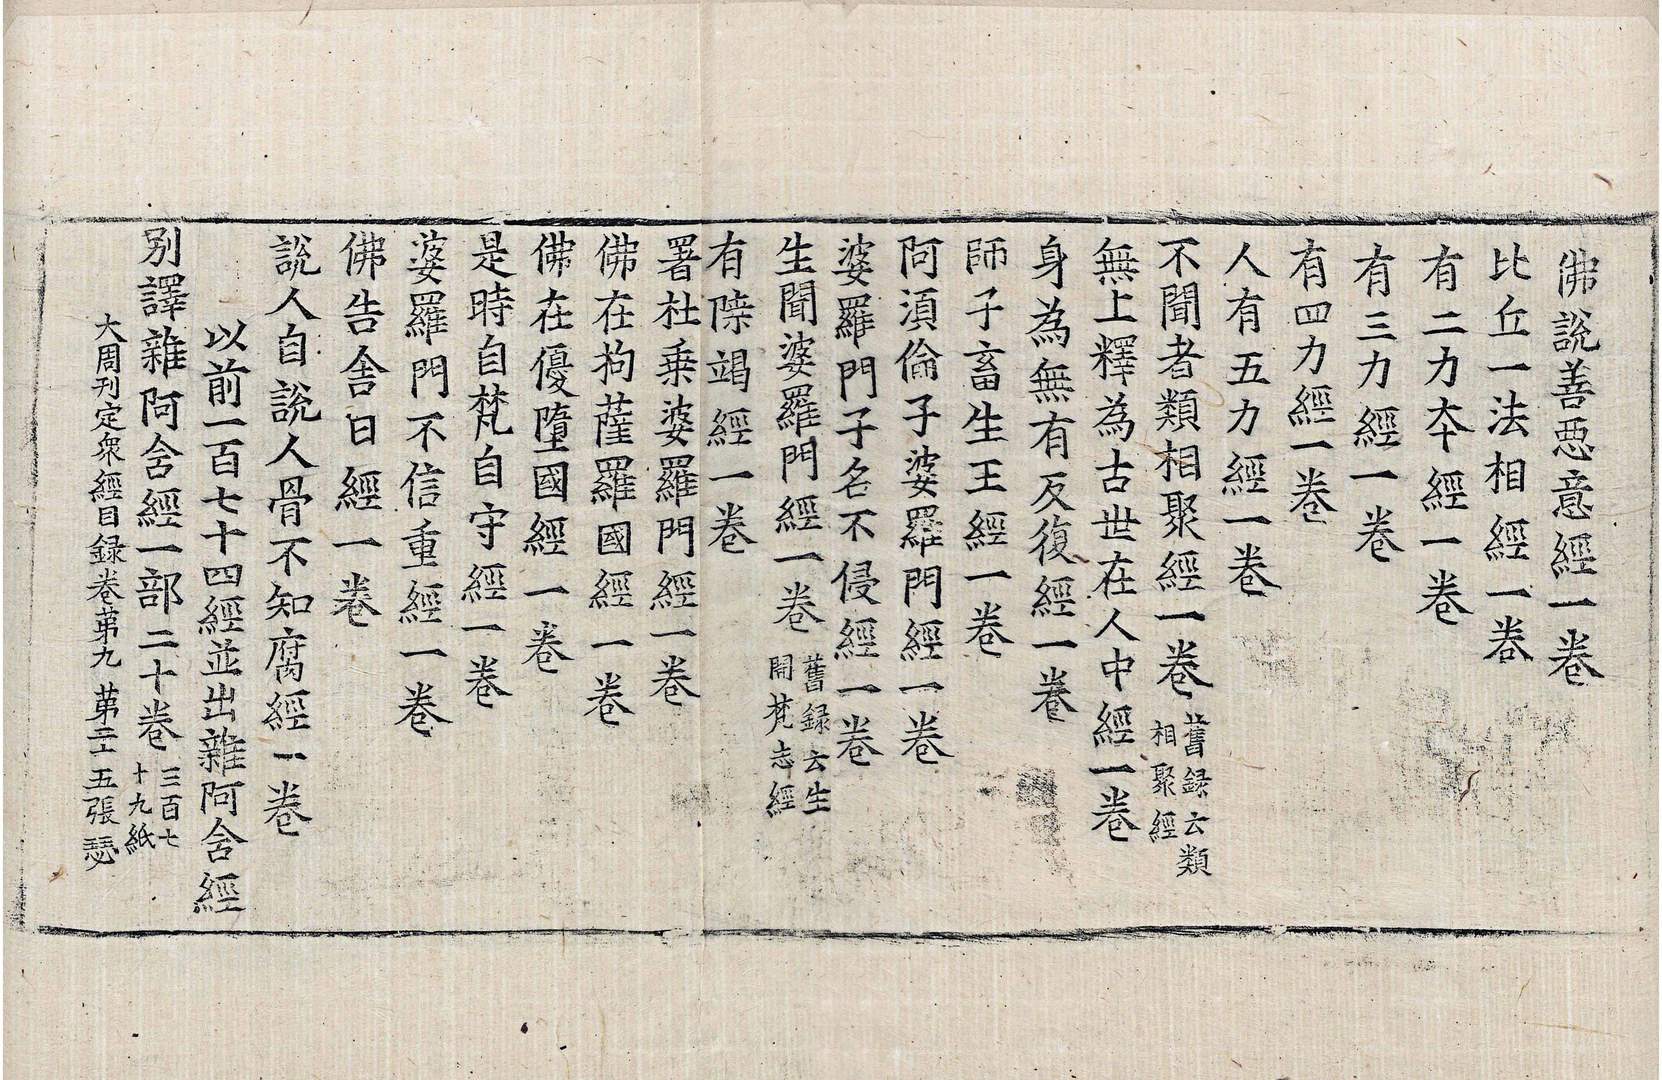 佛說善惡意經一卷
比丘一法相經一卷
有二力夲經一卷
有三力經一卷
有四力經一卷
人有五力經一卷
不聞者類相聚經一卷 舊録云類
相聚經
無上釋為古世在人中經一卷
身為無有反復經一卷
師子畜生王經一卷
阿湏倫子婆羅門經一卷
婆羅門子名不侵經一卷
生聞婆羅門經一卷 舊録云生
聞梵志經
有𨻶竭經一卷
署杜乗婆羅門經一卷
佛在拘薩羅國經一卷
佛在優墮國經一卷
是時自梵自守經一卷
婆羅門不信重經一卷
佛告舎日經一卷
說人自說人骨不知腐經一卷
以前一百七十四經並出雜阿含經
別譯雜阿含經一部二十卷 三百七
十九紙
大周刊定衆經目録卷苐九 苐二十五張 瑟